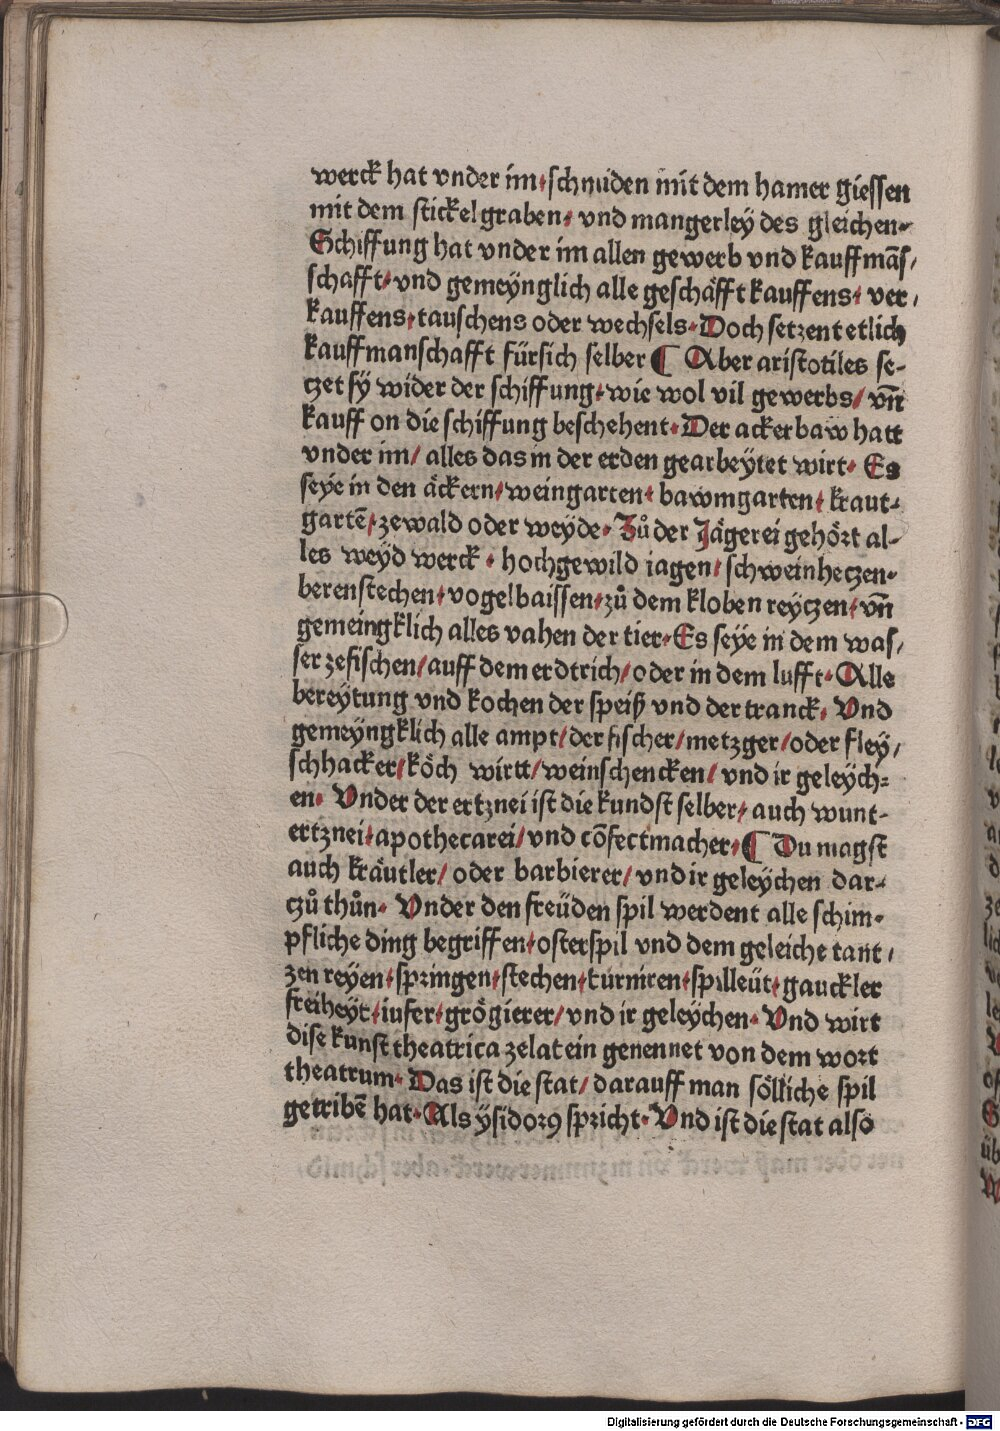 werck hat vnder im· schmiden mit dem hamer giessen
mit dem stickel graben· vnd mangerley des gleichen·
Schiffung hat vnder im allen gewerb vnd kauffmās/
schafft· vnd gemeÿnglich alle geschäfft kauffens· ver/
kauffens· tauschens oder wechsels· Doch setzent etlich
kauffmanschafft fürsich selber ¶ Aber aristotiles se-
czet sÿ wider der schiffung· wie wol vil gewerbs/ vn̄
kauff on die schiffung beschehent· Der ackerbaw hatt
vnder im/ alles das in der erden gearbeÿtet wirt· Es
seÿe in den äckern· weingarten· bawmgarten· kraut-
gartē· zewald oder weyde· Zů der Jägerei gehört al-
les weÿd werck· hochgewild iagen/ schweinheczen·
berenstechen· vogelbaissen· zů dem kloben reyczen· vn̄
gemeingklich alles vahen der tier· Es seÿe in dem was/
ser zefischen/ auff dem erdtrich/ oder in dem lufft· Alle
bereÿtung vnd kochen der speiß vnd der tranck· Vnd
gemeÿngklich alle ampt/ der fischer/ metzger/ oder fleÿ/
schhacker/ köch wirtt/ weinschencken/ vnd ir geleÿch-
en· Vnder der ertznei ist die kundst selber/ auch wunt-
ertznei· apothecarei/ vnd cōfectmacher· ¶ Du magst
auch kräutler/ oder barbierer/ vnd ir geleÿchen dar-
czů thůn· Vnder den freüden spil werdent alle schim-
pfliche ding begriffen· osterspil vnd dem geleiche tant/
zen reyen· springen· stechen· turniren· spilleüt· gauckler
freiheÿt· iufer· grögierer/ vnd ir geleÿchen· Vnd wirt
dise kunst theatrica zelatein genennet von dem wort
theatrum· Das ist die stat/ darauff man sölliche spil
getribē hat· Als ÿsidorꝰ spricht· Vnd ist die stat also
Digitalisierung gefördert durch die Deutsche Forschungsgemeinschaft - DFG